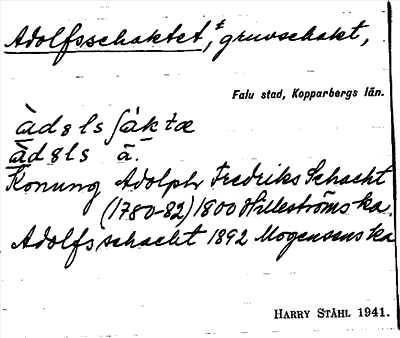 Adolfsschaktet, gruvschakt,
Falu stad, Kopparbergs län.
àdɛls ʃáktæ
àdɛls ā.
Konung Adolph Fredriks Schacht
(1780-82) 1800 Hilleströms ka.
Adolfsschacht 1892 Mogensens ka
HARRY STÅHL 1941.